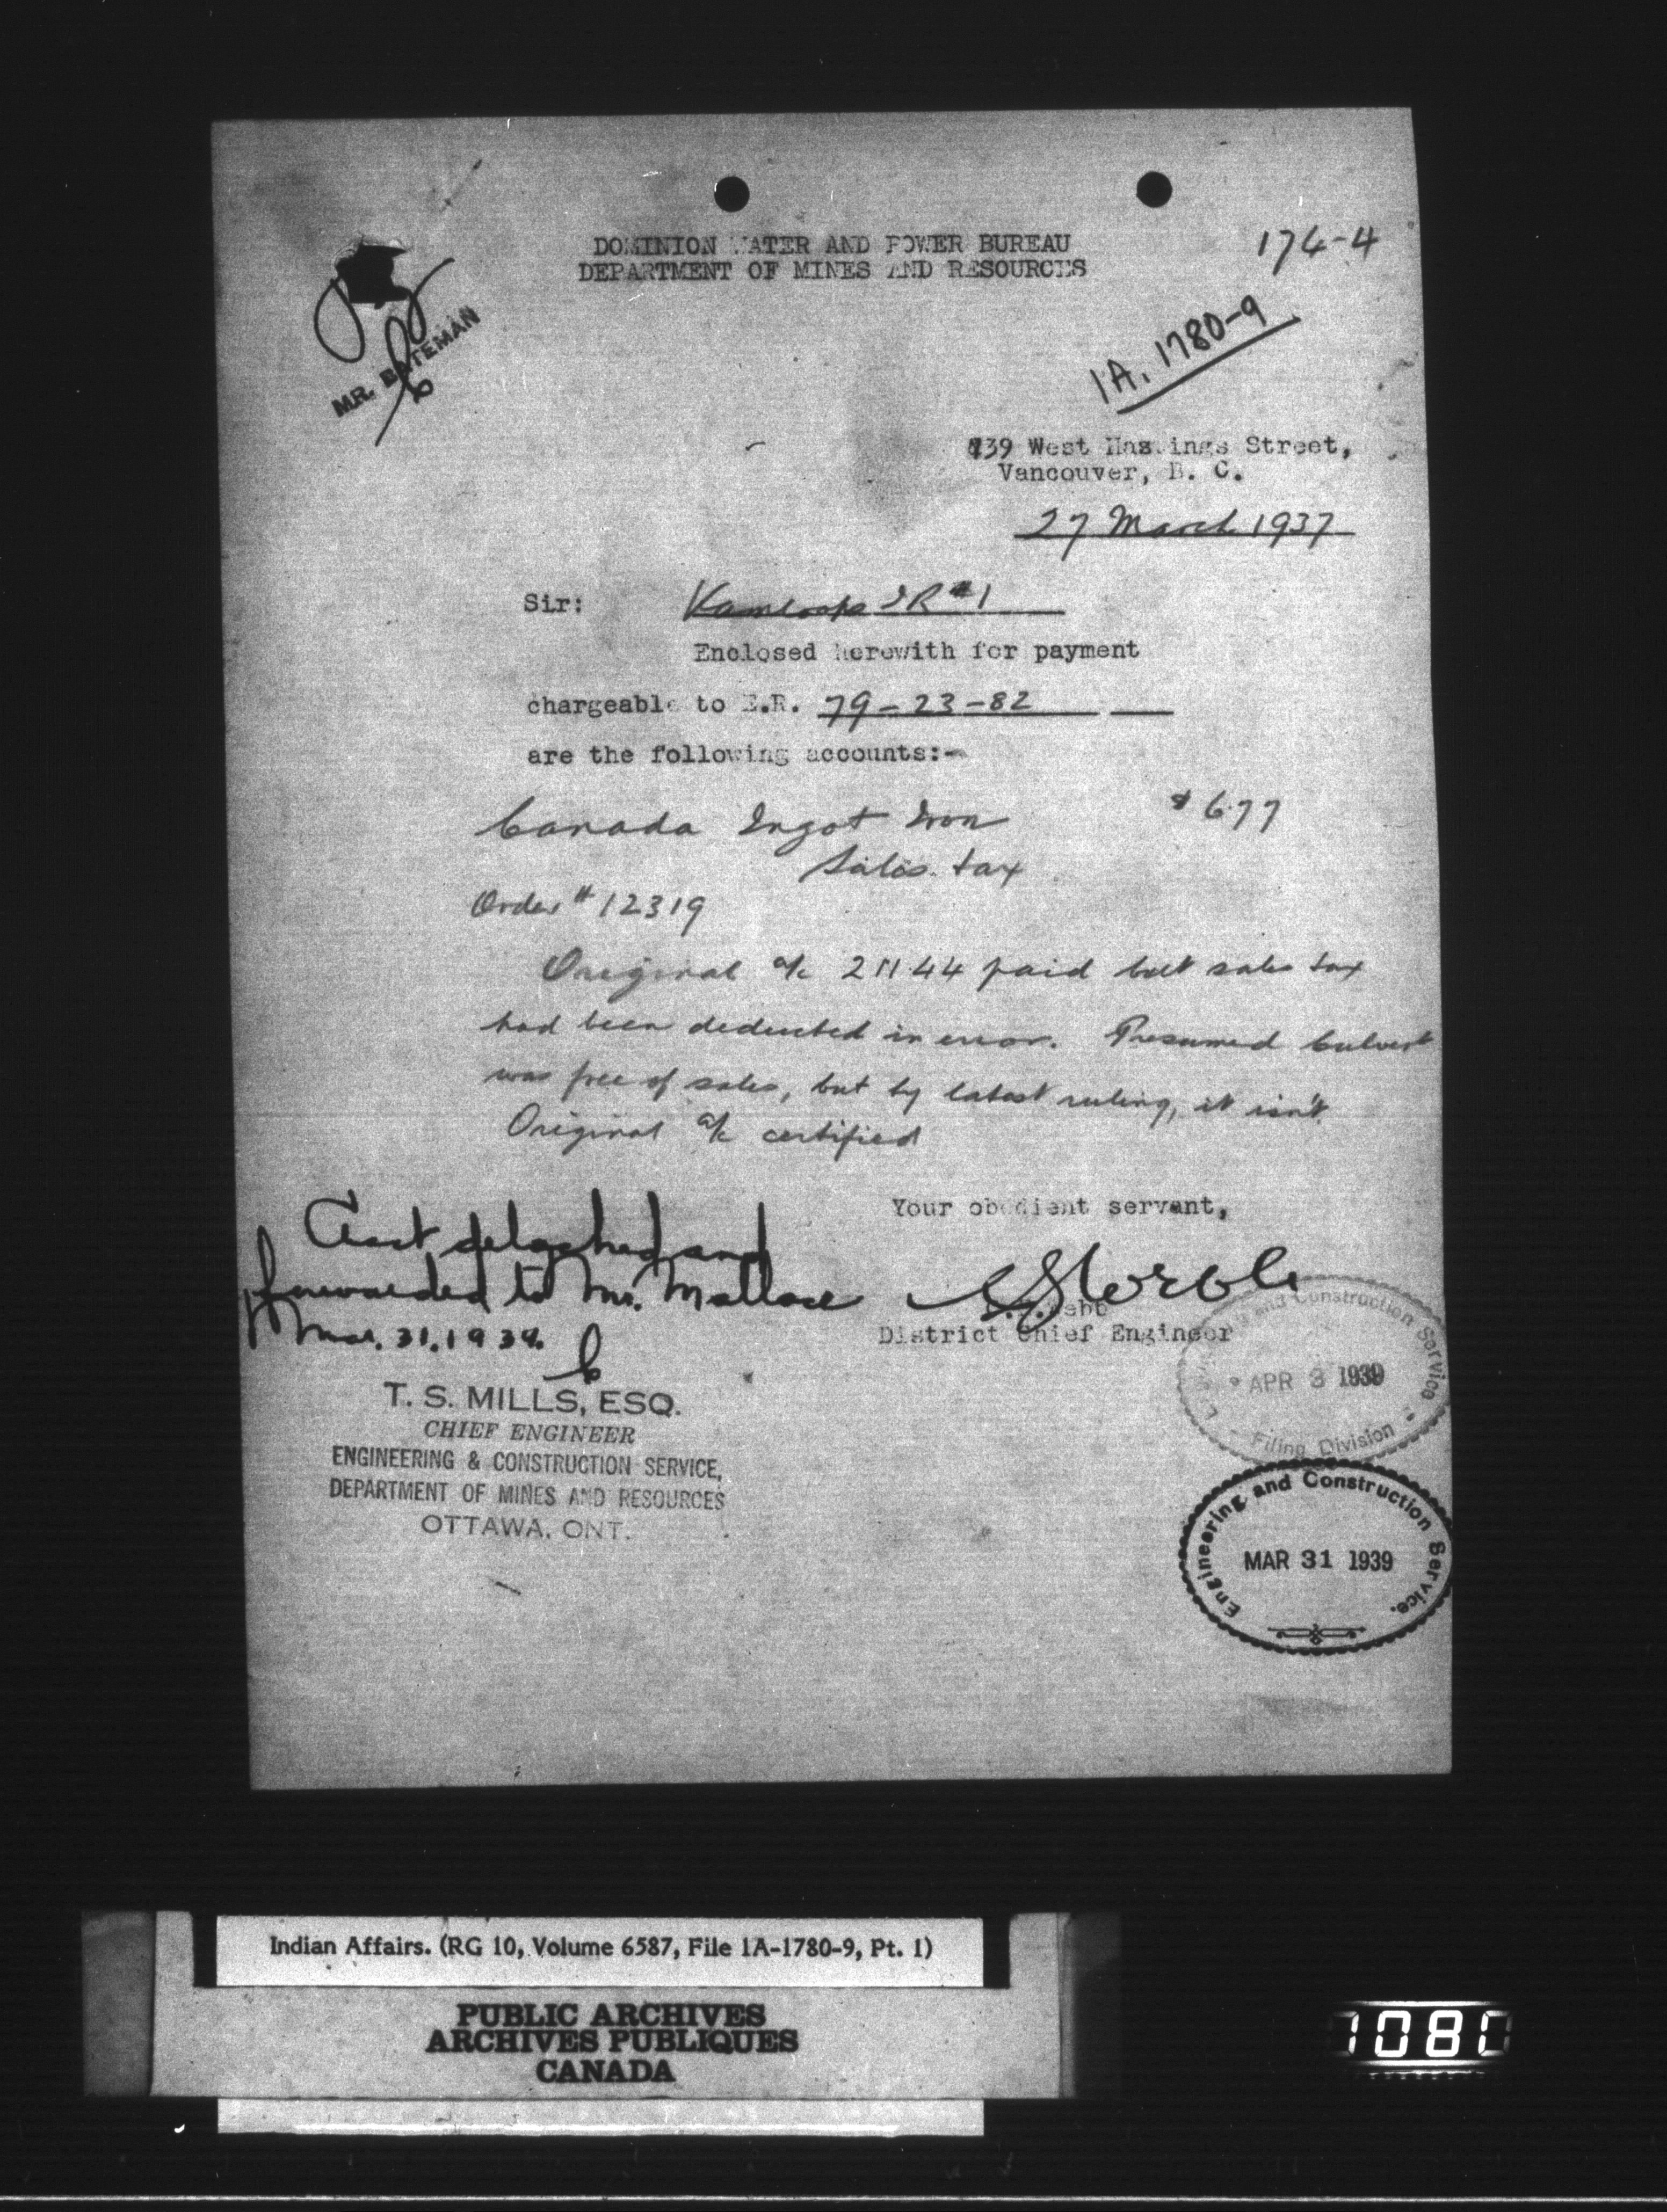 DOMINION WATER AND POWER BUREAU
DEPARTMENT OF MINES AND RESOURCES
174-4
MR. BATEMAN
1A. 1780-9
739 West Hastings Street,
Vancouver, B. C.
27 March 1937
Sir: Kamloops IR #1
Enclosed herewith for payment
chargeable to E.R. 79-23-82
are the following accounts:-
Canada Ingot Iron $6.77
Sales tax
Order # 12319
Original a/c 211.44 paid but sales tax
had been deducted in error. Presumed culvert
was free of sales, but by latest ruling, it isn't.
Original a/c certified
Your obedient servant,
District Chief Engineer
Acct detached and
forwarded to Mr.
Mar. 31. 1939.
T. S. MILLS, ESQ.
CHIEF ENGINEER
ENGINEERING & CONSTRUCTION SERVICE,
DEPARTMENT OF MINES AND RESOURCES
OTTAWA, ONT.
Engineering and Construction Service
APR 3 1939
Filing Division
Engineering and Construction Service.
MAR 31 1939
Indian Affairs. (RG 10, Volume 6587, File 1A-1780-9, Pt. 1)
PUBLIC ARCHIVES
ARCHIVES PUBLIQUES
CANADA
1080